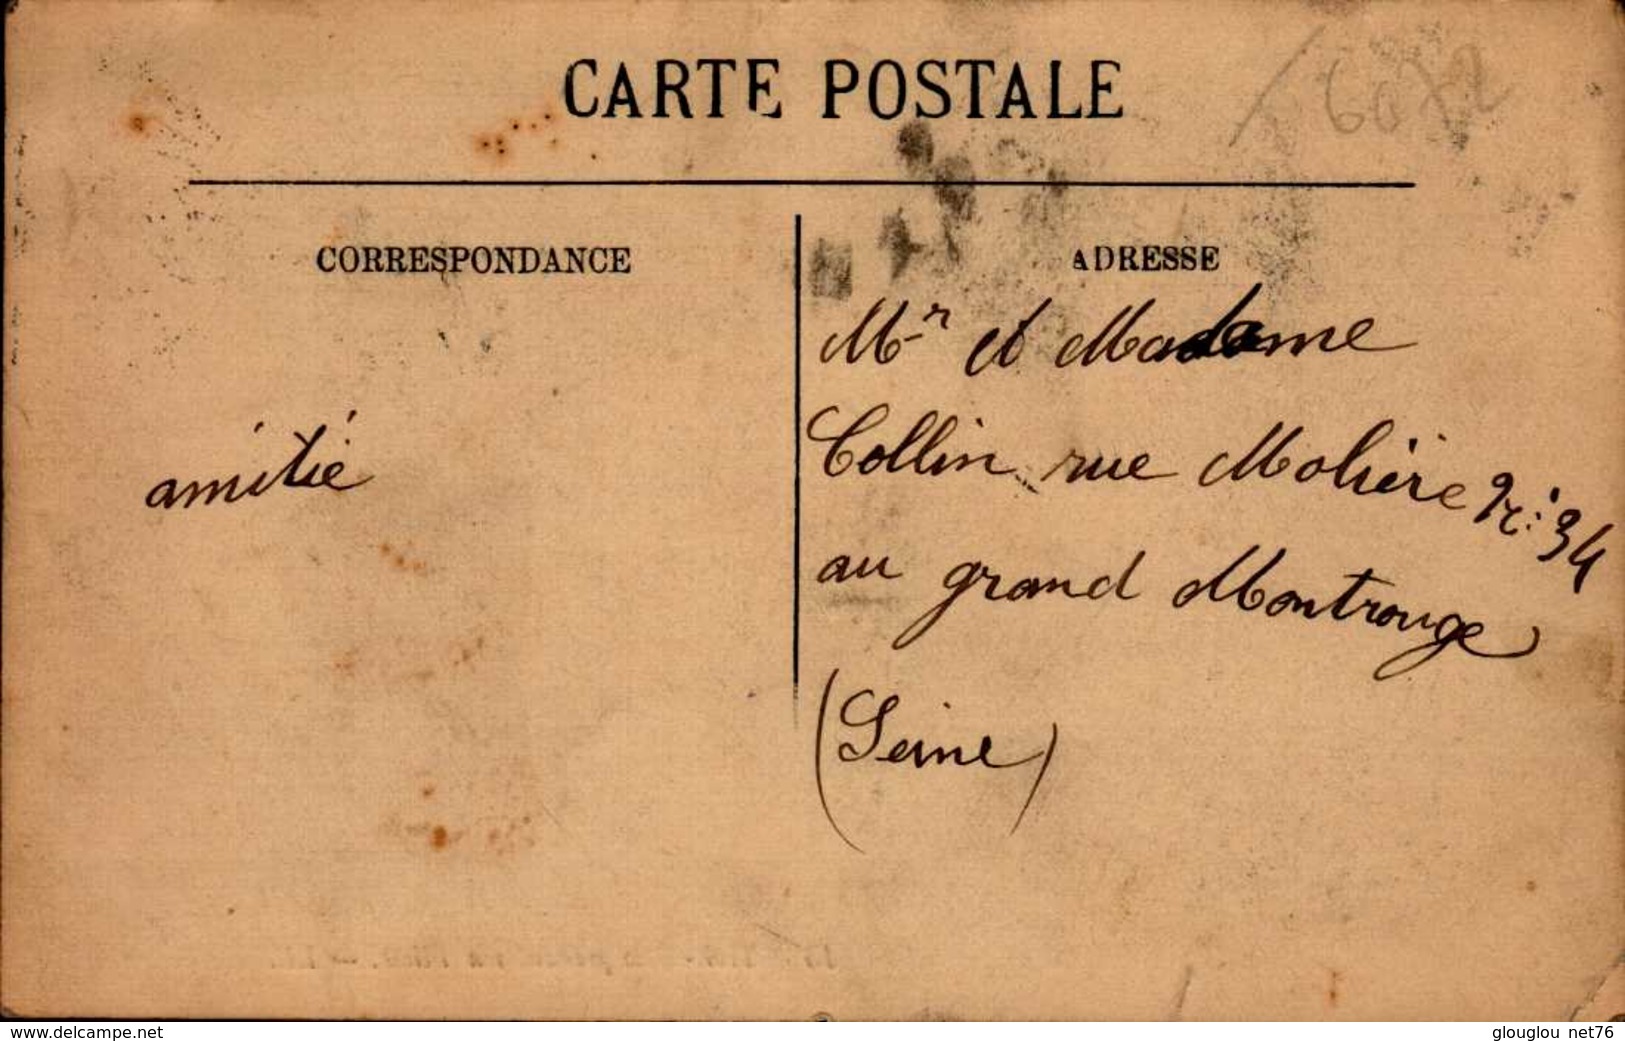 CARTE POSTALE
CORRESPONDANCE
amitié
ADRESSE
Mr et Madame
Collin rue Molière Nr: 34
au grand Montrouge
(Seine)
www.delcampe.net
glouglou net76